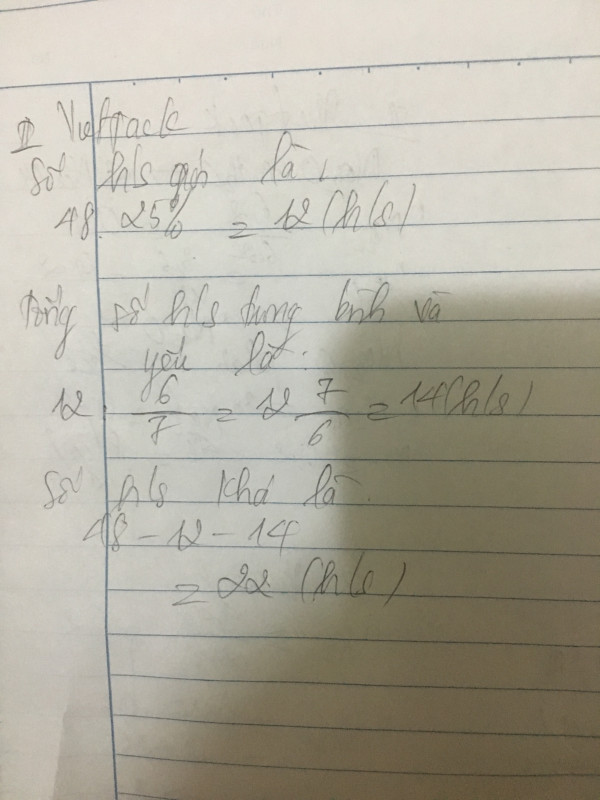 II Vietjack
Số h/s giỏi là,
48. 25% = 12 (h/s)
Tổng số h/s trung bình và
yếu là:
12 . 6/7 = 12 7/6 = 14 (h/s)
Số h/s khá là.
48 - 12 - 14
= 22 (h/s)